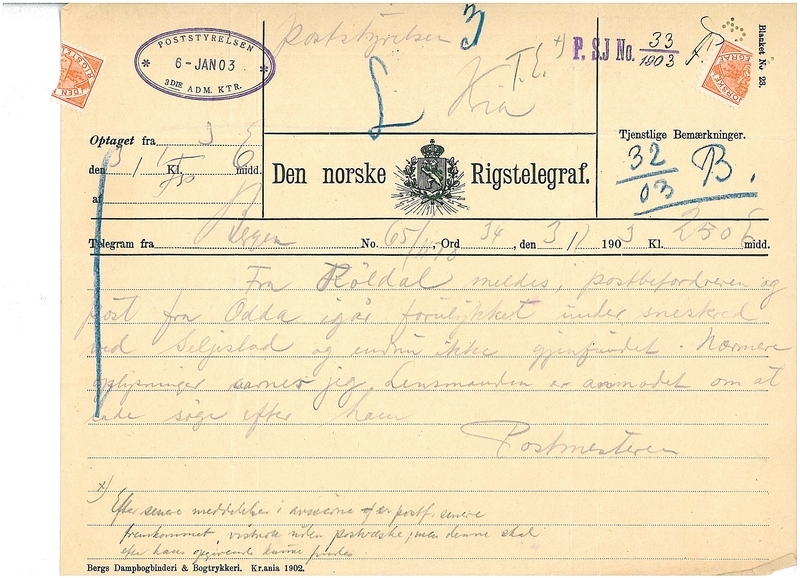 POSTSTYRELSEN
6-JAN 03
3DIE ADM. KTR.
Poststyrelsen
3
Kria
T.E.
x)
P. SJ No. 33/1903
Blanket No 23.
Optaget fra
den 3/1 Kl. midd.
af
Den norske Rigstelegraf.
Tjenstlige Bemærkninger.
32/03 B.
Telegram fra Bergen No. 65, Ord 34, den 3/1 1903 Kl. 250 E midd.
Fra Röldal meldes, postbefordreren og
post fra Odda igår forulykket under sneskred
ved Seljestad og endnu ikke gjenfundet. Nærmere
oplysninger savner jeg. Lensmanden er anmodet om at
lade søge efter ham
Postmesteren
x)
Efter senere meddelelser i aviserne er postf. senere
fremkommet, vistnok uden postvæske, men denne skal
efter hans opgivende kunne findes
Bergs Dampbogbinderi & Bogtrykkeri. Kr.ania 1902.